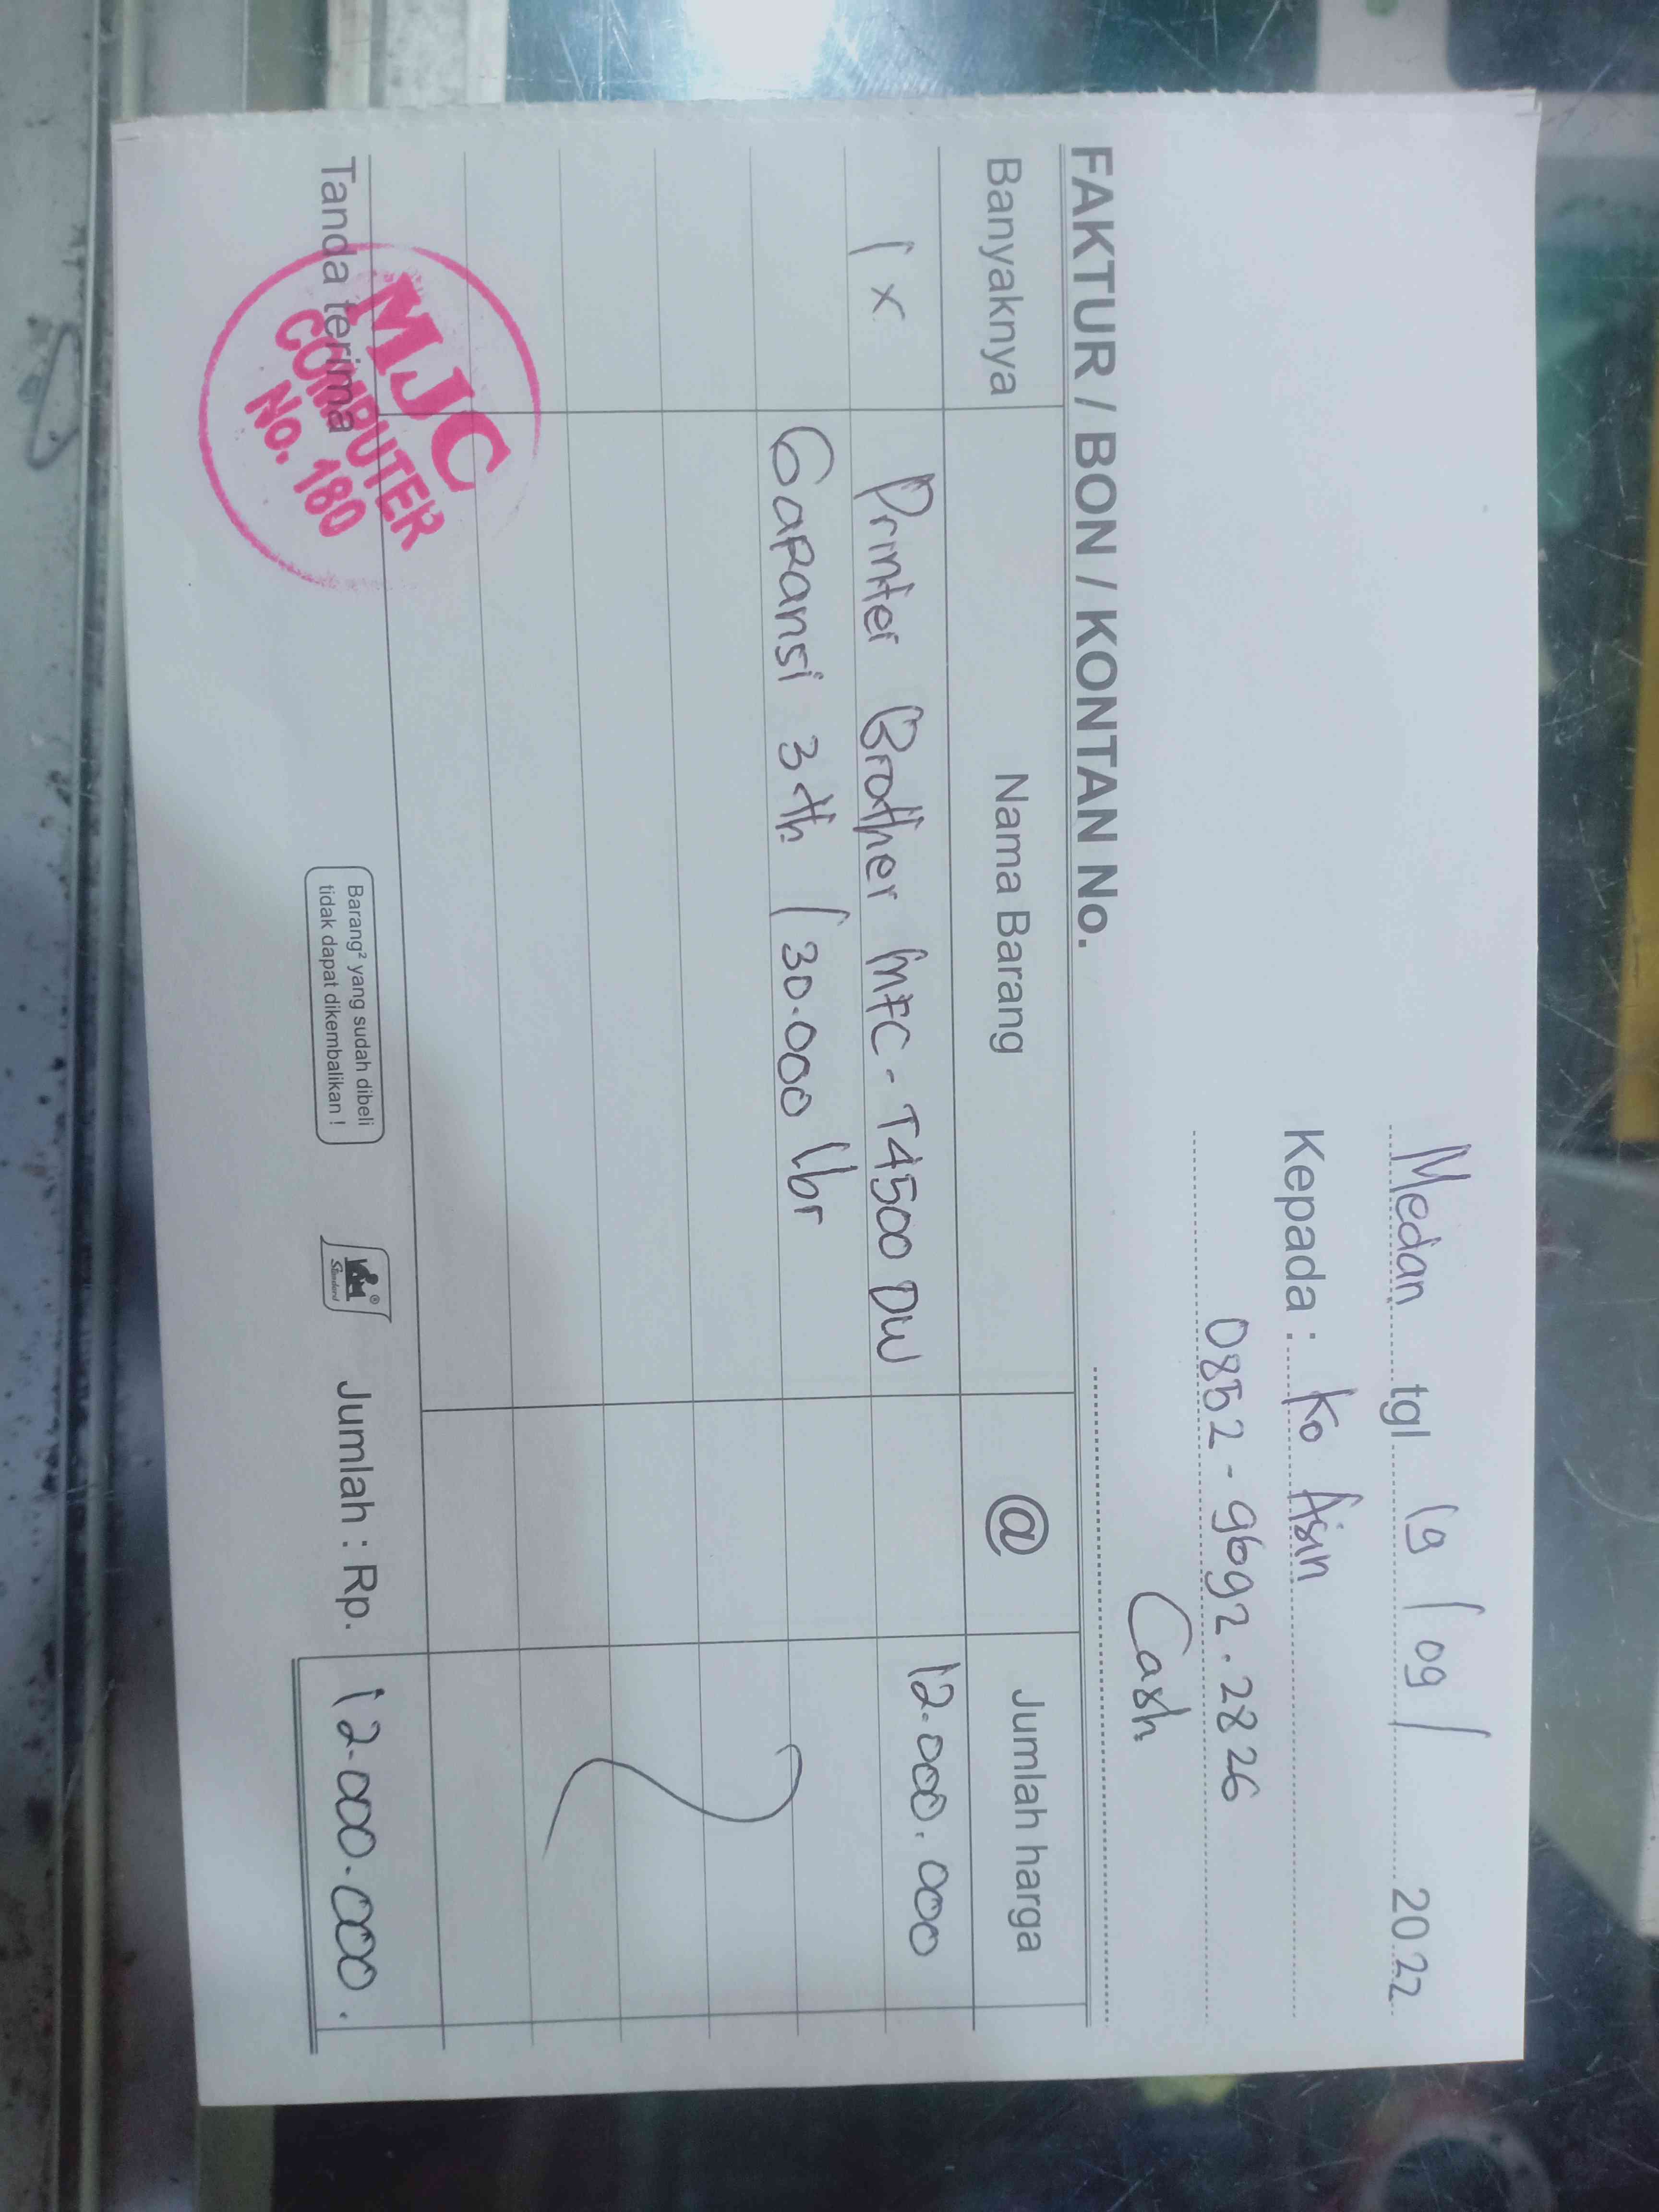 Medan tgl 19 / 09 / 2022
Kepada : Ko Asin
0852 - 9692 . 2826
Cash
FAKTUR / BON / KONTAN No.
Banyaknya Nama Barang @ Jumlah harga
1 x Printer Brother MFC - T4500 DW 12.000.000
Garansi 3 th / 30.000 lbr
Tanda terima
MJC
COMPUTER
No. 180
Barang² yang sudah dibeli
tidak dapat dikembalikan !
Standard
Jumlah : Rp. 12.000.000.